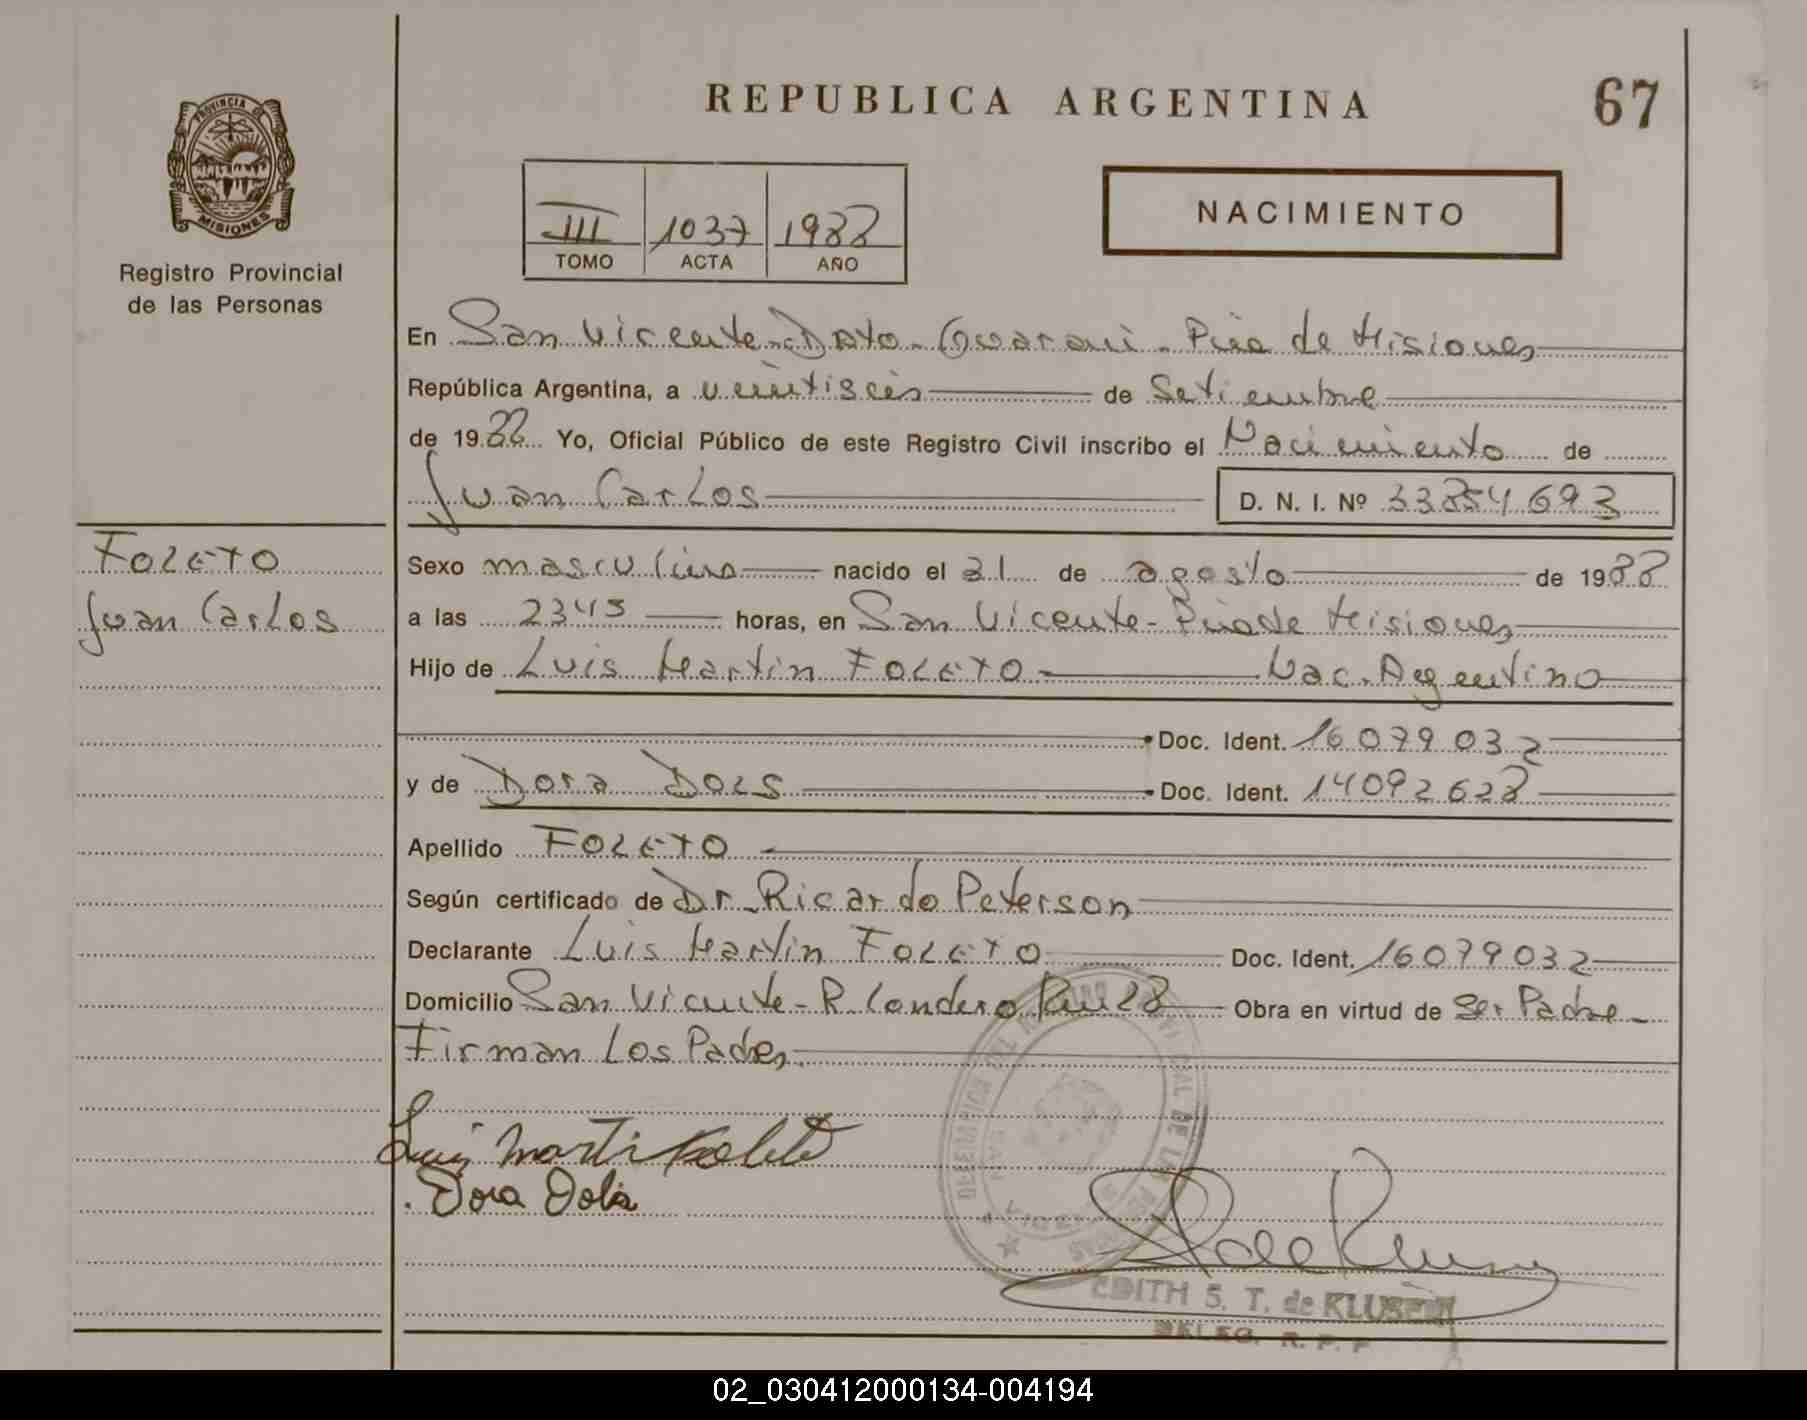 REPUBLICA ARGENTINA
67
PROVINCIA DE
MISIONES
Registro Provincial
de las Personas
III 1037 1988
TOMO ACTA AÑO
NACIMIENTO
En San Vicente - Dpto - Guarani - Pcia de Misiones
República Argentina, a veintiseis de Setiembre
de 1988 Yo, Oficial Público de este Registro Civil inscribo el Nacimiento de
Juan Carlos D. N. I. Nº 33854693
FOLETO
Juan Carlos
Sexo masculino nacido el 21 de agosto de 1988
a las 2345 horas, en San Vicente - Pcia de Misiones
Hijo de Luis Martin FOLETO Nac. Argentino
Doc. Ident. 16079032
y de Dora DOLS Doc. Ident. 14092628
Apellido FOLETO
Según certificado de Dr. Ricardo Peterson
Declarante Luis Martin FOLETO Doc. Ident. 16079032
Domicilio San Vicente - R. Londero Km 28 Obra en virtud de Ser Padre
Firman Los Padres
Luis Martin Foleto
Dora Dols
EDITH S. T. de KLUSENER
DELEG. R. P. P
02_030412000134-004194